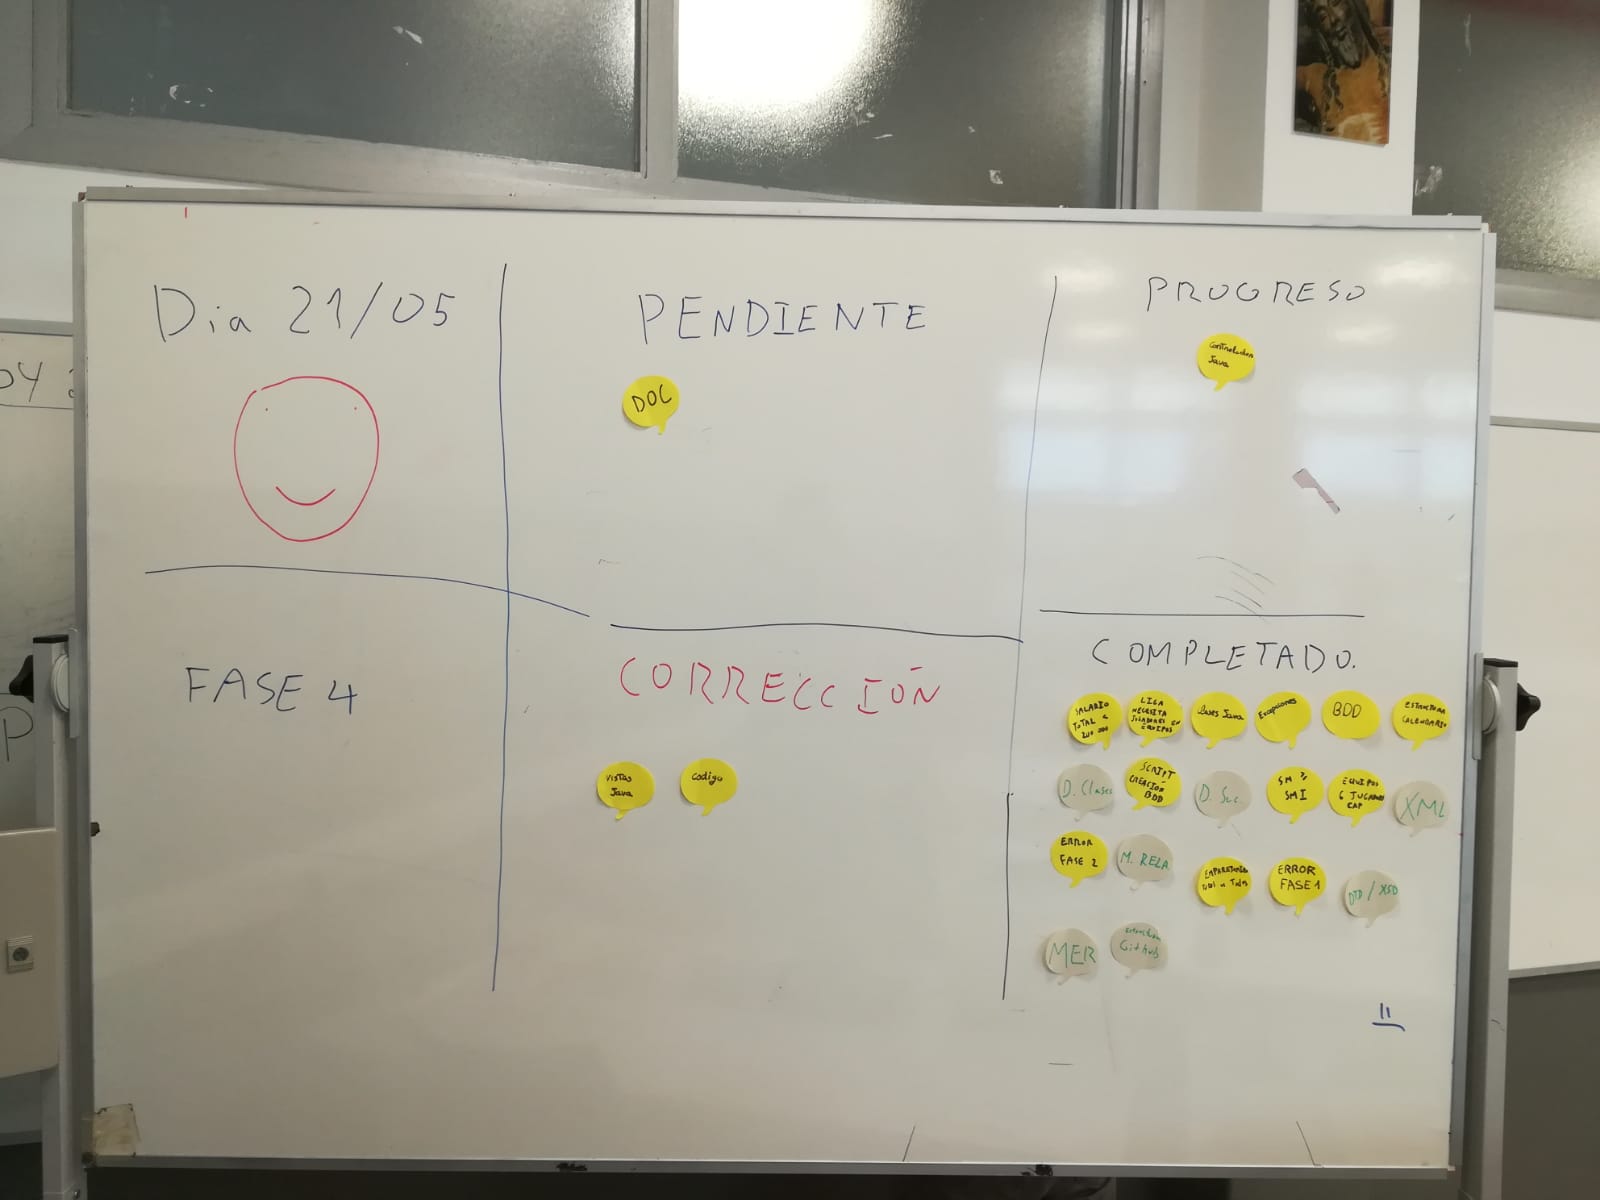 Dia 21/05
PENDIENTE
DOC
PROGRESO
Controlador
Java
FASE 4
CORRECCIÓN
Vistas
Java
Codigo
COMPLETADO.
SALARIO
TOTAL <
200 000
LIGA
NECESITA
JUGADORES EN
EQUIPOS
Clases Java
Excepciones
BDD
ESTRUCTURA
CALENDARIO
D. Clases
SCRIPT
CREACIÓN
BDD
D. Sec.
SM >
SMI
EQUIPOS
6 JUGADORES
CAP
XML
ERROR
FASE 2
M. RELA
Todos
ERROR
FASE 1
DTD / XSD
MER
Github
11
P